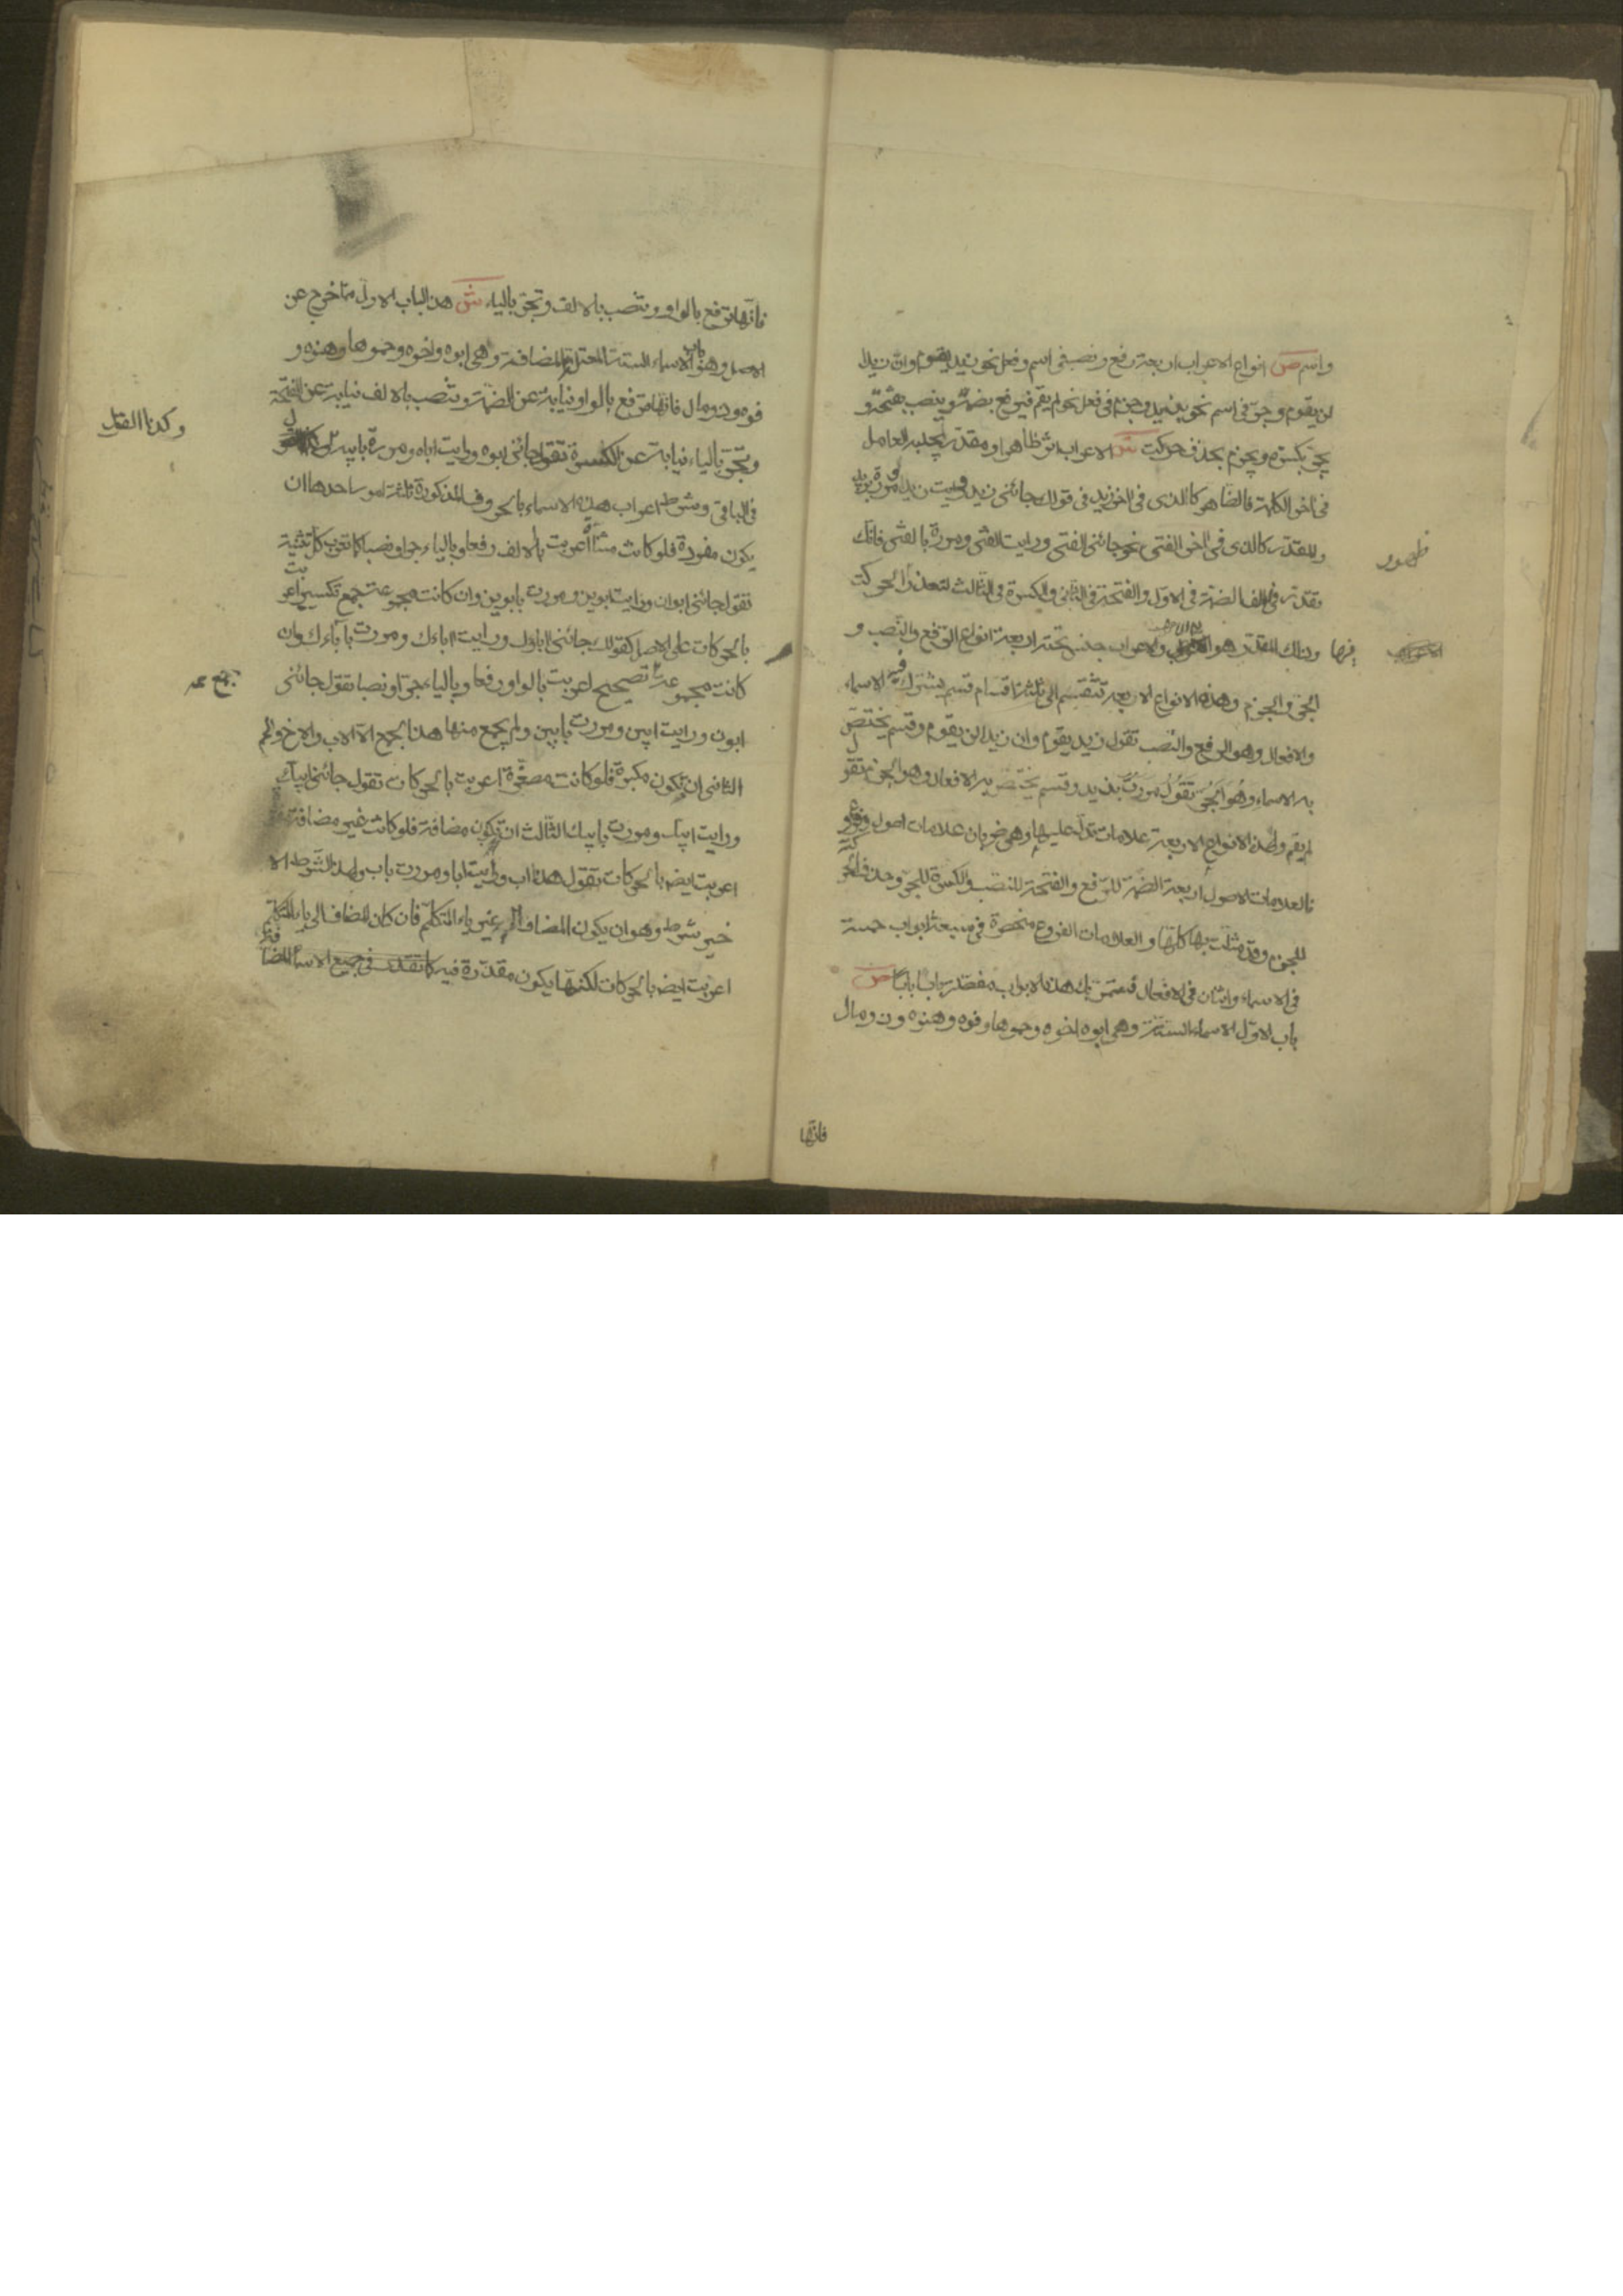 واسم ص انواع الاعراب اربعة رفع ونصب فى اسم وفعل نحو زيد يقوم وان زيدا
لن يقوم وجر فى اسم نحو بزيد وجزم فى فعل نحو لم يقم فيرفع بضمة وينصب بفتحة و
يجر بكسرة ويجزم بحذف حركت ش الاعراب اثر ظاهر او مقدر يجلبه العامل
فى اخر الكلمة فالظاهر كالذى فى اخر زيد فى قولك جائنى زيد ورايت زيدا ومررة بزيد
والمقدر كالذى فى اخر الفتى نحو جائنى الفتى ورايت الفتى ومررة بالفتى فانك
ظهور
تقدر فى الف الضمة فى الاول والفتحة فى الثانى والكسرة فى الثالث لتعذر الحركت
فيها وذلك المقدر هو الاعراب والاعراب جنس تحته اربعة انواع الرفع والنصب و
الجر والجزم وهذه الانواع الاربعة تنقسم الى ثلثة اقسام قسم يشترك فيه الاسماء
والافعال وهو الرفع والنصب تقول زيد يقوم وان زيدا لن يقوم وقسم يختص
به الاسماء وهُوَ الجُر تَقُولُ مررتُ بزيد وقسم يختص به الافعال وهو الجزم تقول
لم يقم ولهذه الانواع الاربعة علامات تدل عليها وهى ضربان علامات اصول وفروع
فالعلامات الاصول اربعة الضمة للرفع والفتحة للنصب والكسرة للجر وحذف الحركة
للجزم وقد مثلت بها كلها والعلامات الفروع منحصرة فى سبعة ابواب خمسة
فى الاسماء واثنان فى الافعال فستمر بك هذه الابواب مفصلة بابا بابا ص
باب الاول الاسماء الستة وهى ابوه اخوه وحموها وفوه وهنوه وذو مال
فانها
فانها ترفع بالواو وتنصب بالالف وتجر بالياء ش هذا الباب الاول مما خرج عن
الاصل وهو باب الاسماء الستة المعتلة المضافة وهى ابوه واخوه وحموها وهنوه و
فوه وذو مال فانها ترفع بالواو نيابة عن الضمة وتنصب بالالف نيابة عن الفتحة
وتجر بالياء نيابة عن الكسرة تقول جائنى ابوه ورايت اباه ومررة بابيه
وكذا القول
فى الباقى وشرط اعراب هذه الاسماء بالحروف المذكورة ثلثة امور احدها ان
يكون مفردة فلو كانت مثناة اعربت بالالف رفعا وبالياء جرا ونصبا كما تعرب كل تثنية
تقول جائنى ابوان ورايت ابوين ومررت بابوين وان كانت مجموعة جمع تكسير اعربت
بالحركات على الاصل كقولك جائنى اباؤك ورايت اباءك ومررت بابائك وان
كانت مجموعة تصحيح اعربت بالواو رفعا وبالياء جرا ونصبا تقول جائنى
جمع
ابون ورايت ابين ومررت بابين ولم يجمع منها هذا الجمع الا الاب والاخ والحم
الثانى ان تكون مكبرة فلو كانت مصغرة اعربت بالحركات تقول جائنى ابيك
ورايت ابيك ومررت بابيك الثالث ان تكون مضافة فلو كانت غير مضافة
اعربت ايضا بالحركات تقول هذا اب ورايت ابا ومررت باب ولهذا الشرط الا
خير شرط وهو ان يكون المضاف اليه غير ياء المتكلم فان كان المضاف الى ياء المتكلم
اعربت ايضا بالحركات لكنها يكون مقدرة فيه كما تقدر فى جميع الاسماء المضافة